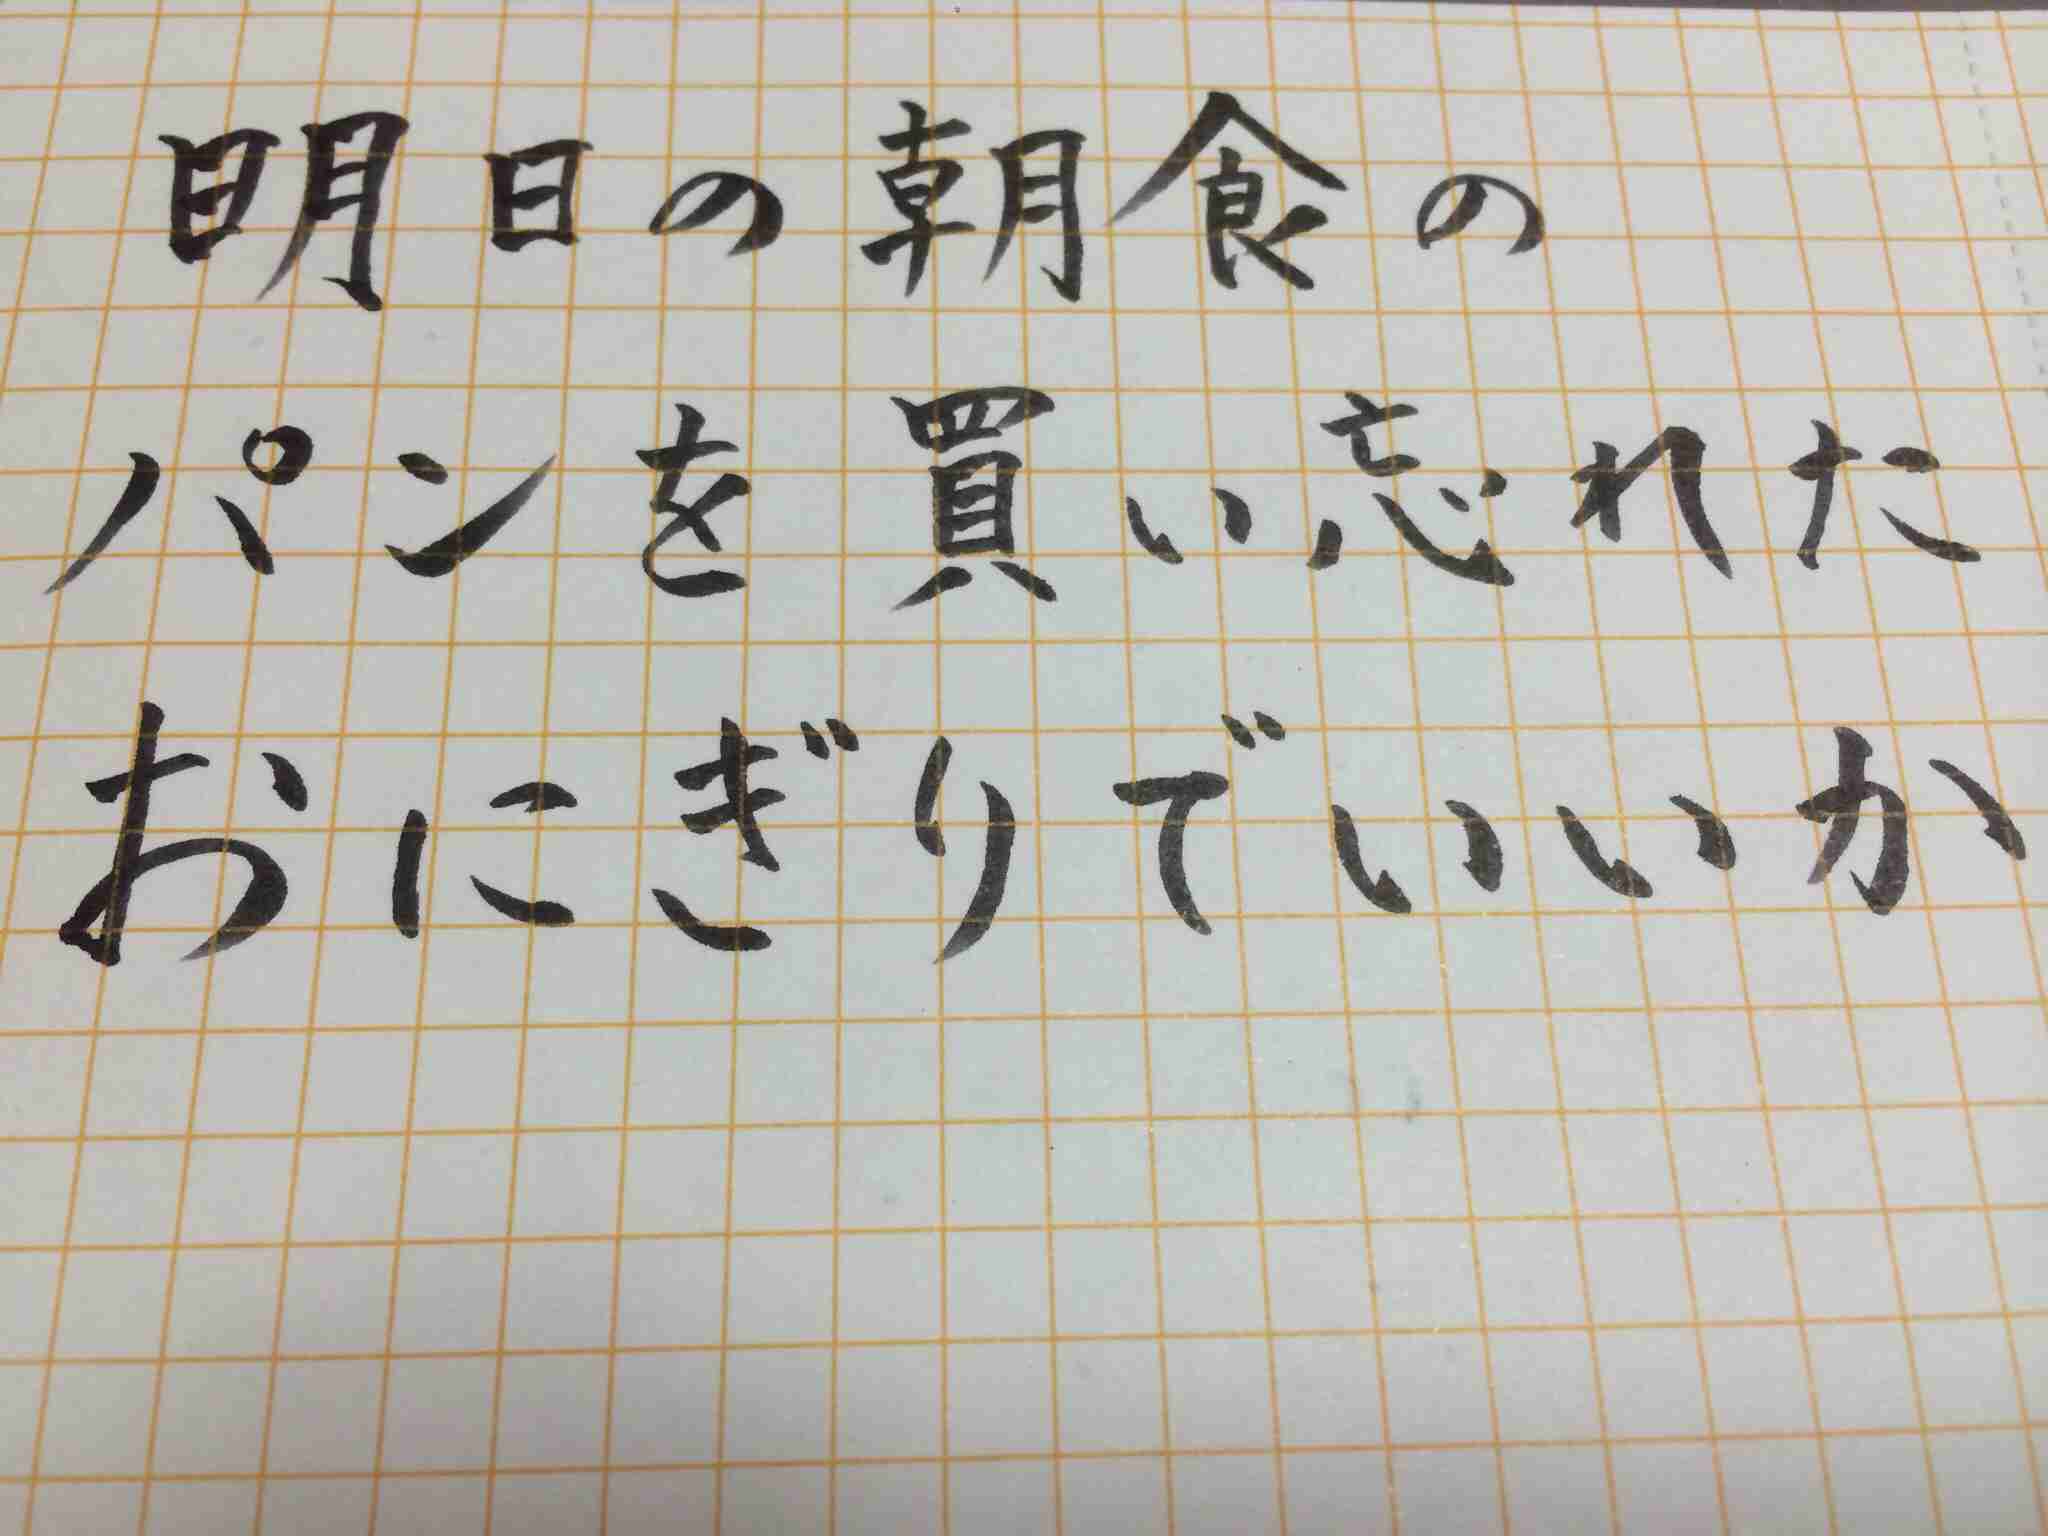 明日の朝食の
パンを買い忘れた
おにぎりでいいか